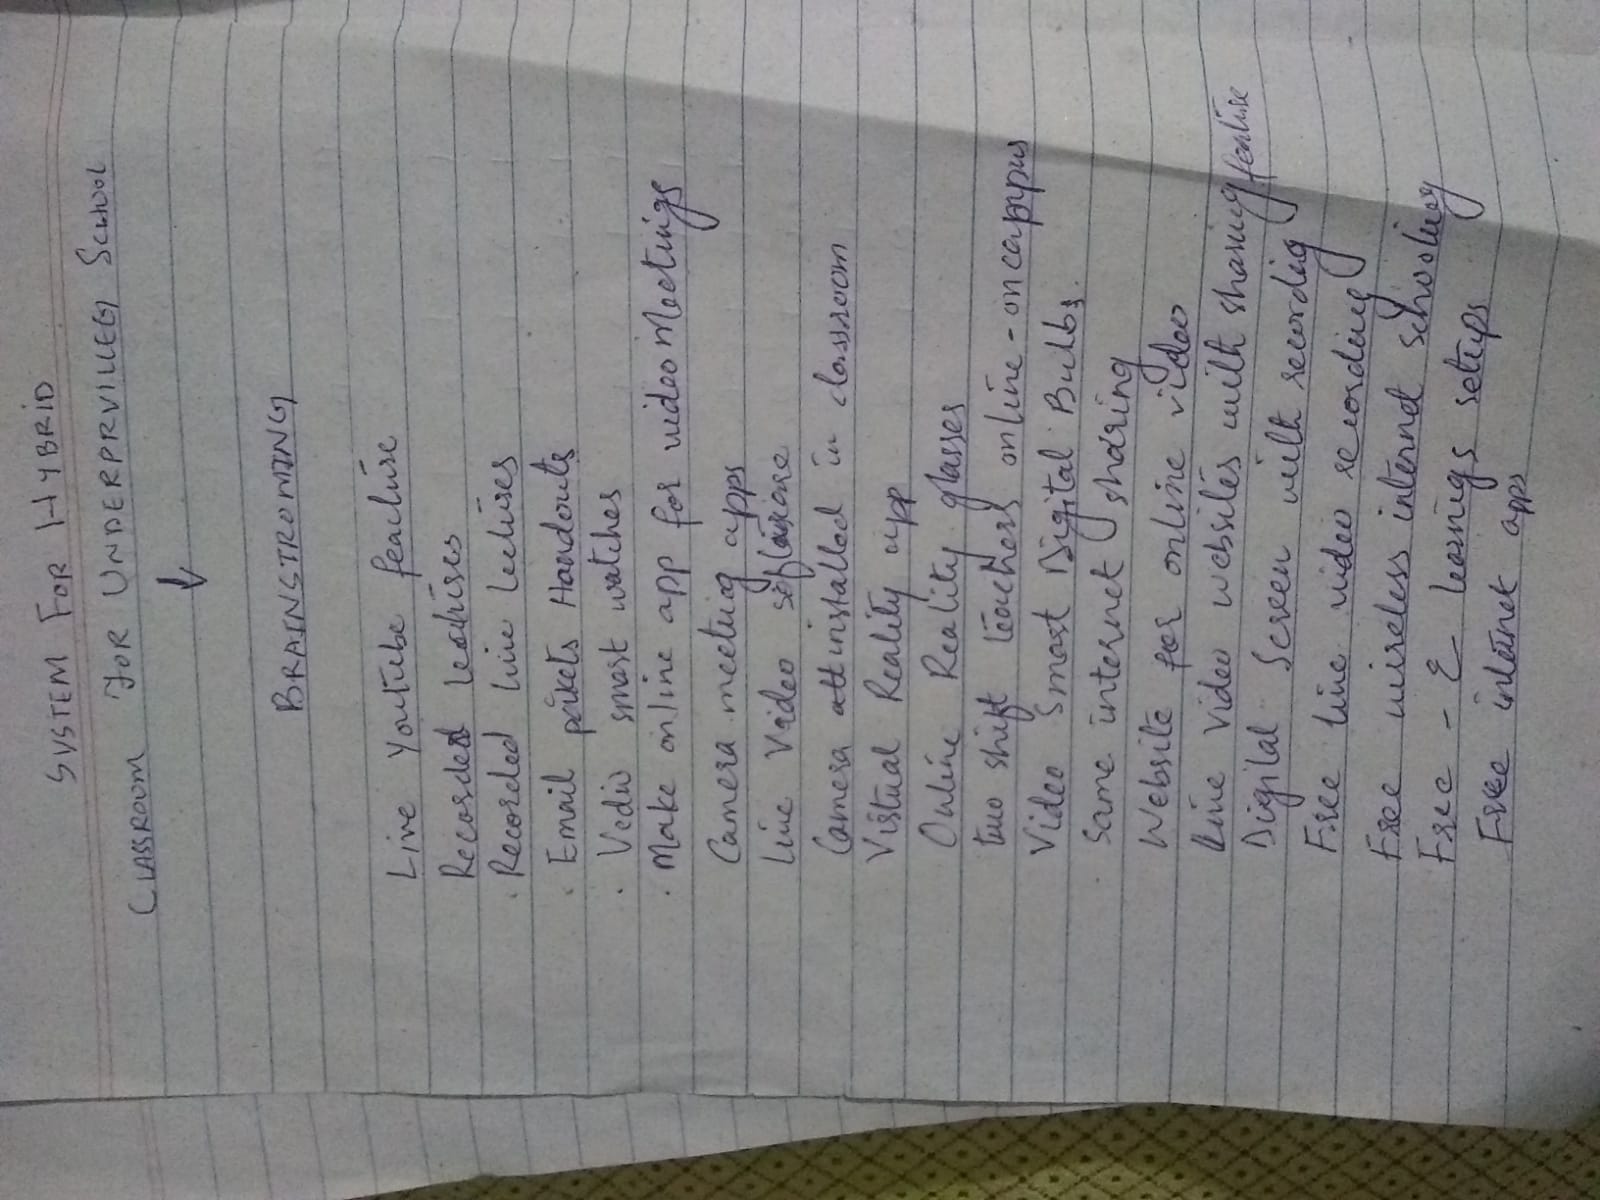 SYSTEM FOR HYBRID
CLASSROOM FOR UNDERPRVILLEG SCHOOL
↓
BRAINSTROMING
Live Youtube feacture
Recorded lectures
. Recorded live lectures
. Email pakets Handouts
. Vedio smart watches
. Make online app for video Meetings
Camera meeting apps
Live Video software
Camera installed in classroom
Virtual Reality app
Online Reality glasses
two shift teachers online - oncampus
Video Smart Digital Bulbs.
Same internet sharing
Website for online video
Live video websites with sharing feature
Digital Screen with recording
Free live video recording
Free wireless internet schooling
Free - E learnigs setups
Free internet apps